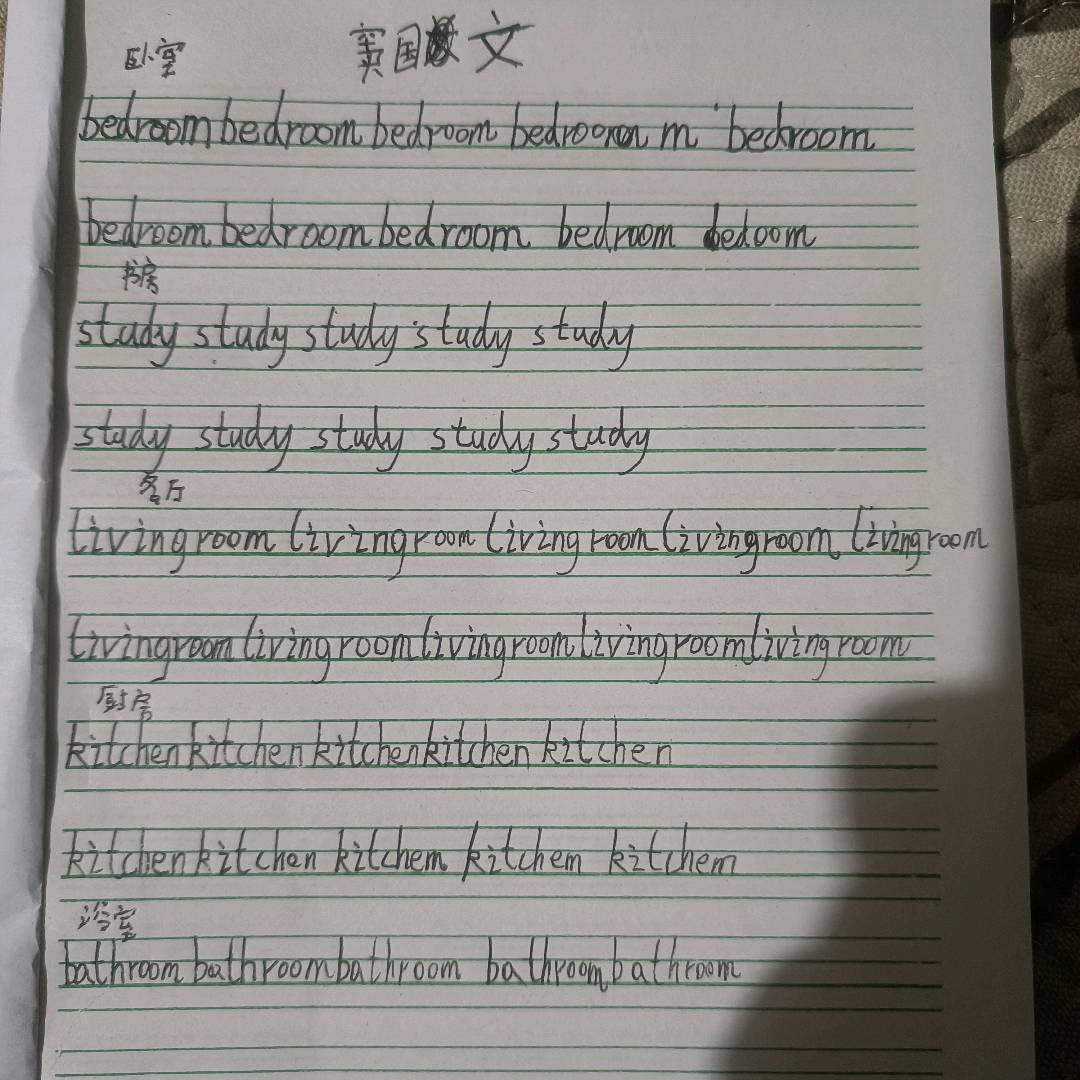 卧室 窦国文
bedroom bedroom bedroom bedroom m bedroom
bedroom bedroom bedroom bedroom bedoom
书房
study study study study study
study study study study study
客厅
livingroom livingroom livingroom livingroom livingroom
livingroom livingroom livingroom livingroom livingroom
厨房
kitchen kitchen kitchen kitchen kitchen
kitchen kitchen kitchem kitchem kitchem
浴室
bathroom bathroom bathroom bathroom bathroom